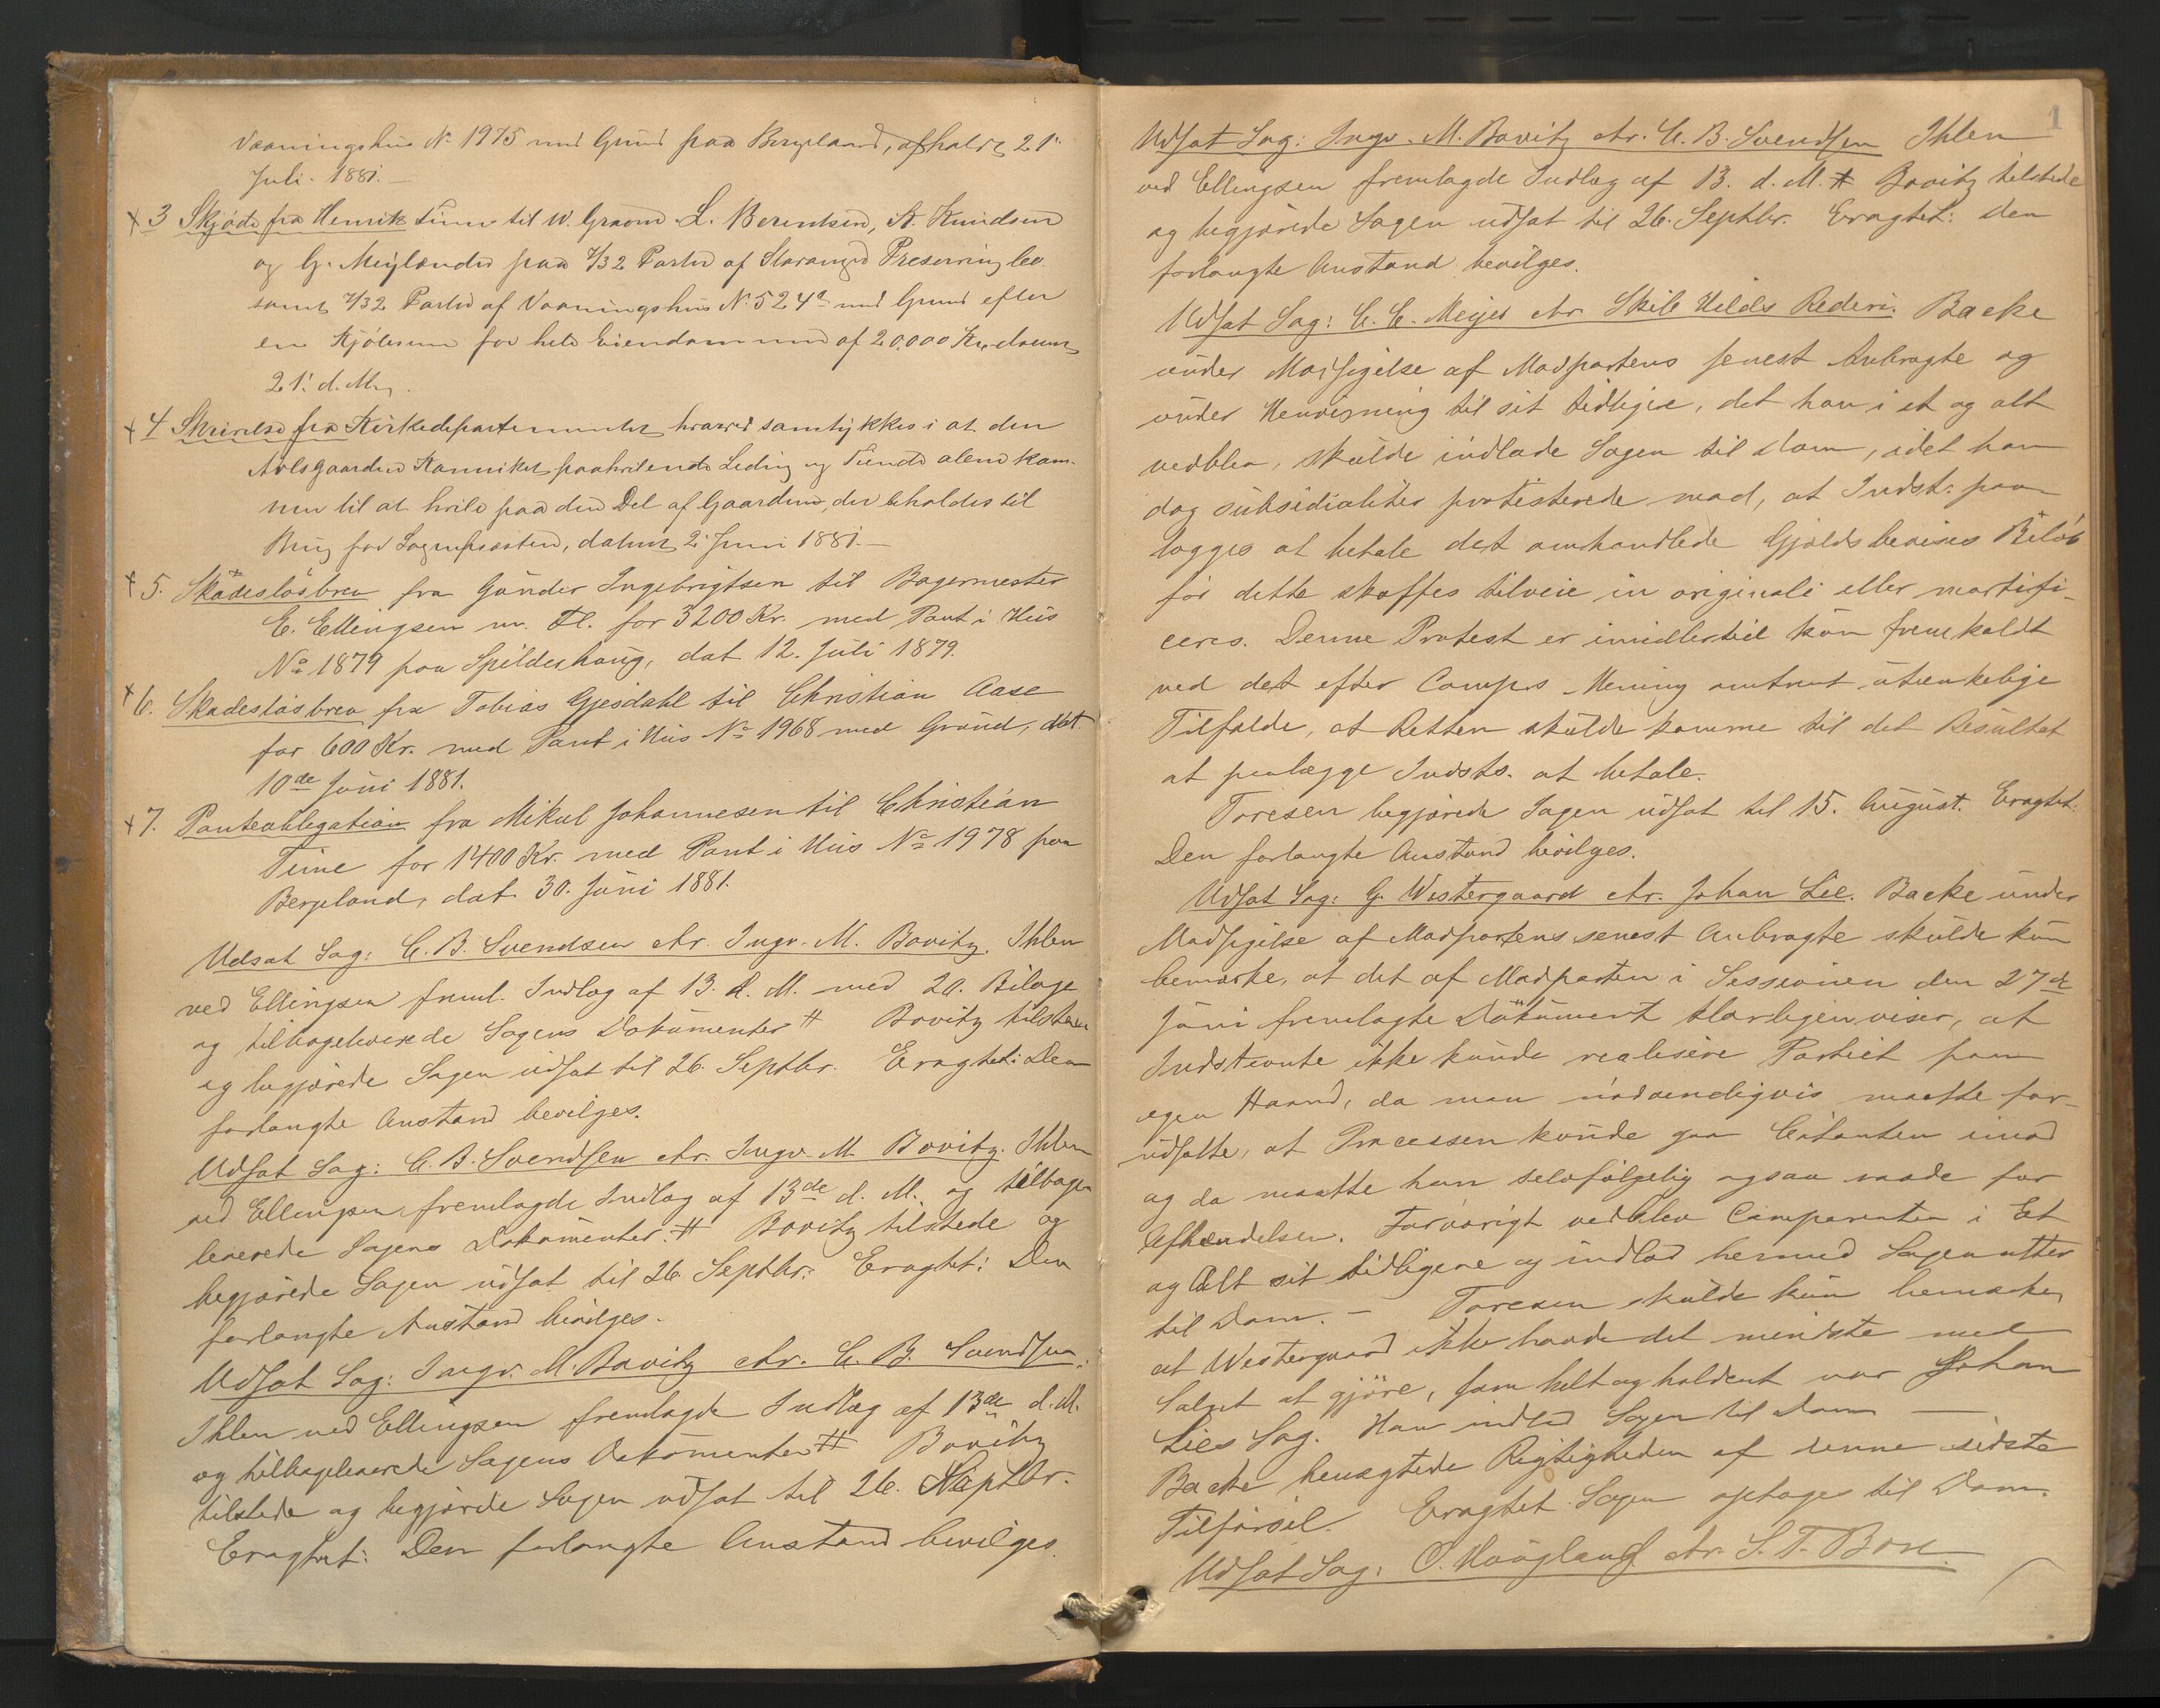 Vaaningshus No 1975 med Grund paa Bergeland, afholdt 21.
Juli. 1881.
+ 3 Skjøde fra Henrik Finne til W. Graom L. Berentsen, A. Knudsen
og G. Meylænder paa 7/32 Parter af Stavanger Preserving Co.
samt 7/32 Parter af Vaaningshus No. 524a med Grund efter
en Kjøbesum for hele Eiendommen af 20,000 Kr, datum
21. d. M.
+ 4 Skrivelse fra Kirkedepartementet hvorved samtykkes i at den
Avlsgaarden Kanniket paahvilende Leding og Tiende alene kom-
mer til at hvile paa den Del af Gaarden, der beholdes til
Brug for Sognepræsten, datum 2. Juni 1881.
+ 5. Skadesløsbrev fra Gunder Ingebrigtsen til Bagermester
E. Ellingsen m. Fl. for 3200 Kr. med Pant i Hus
No 1879 paa Spilderhaug, dat 12. Juli 1879.
+ 6. Skadesløsbrev fra Tobias Gjesdahl til Christian Aase
for 600 Kr. med Pant i Hus No 1968 med Grund, dat.
10de Juni 1881.
+ 7. Panteobligation fra Mikal Johannesen til Christian
Time for 1400 Kr. med Pant i Hus No 1978 paa
Bergeland, dat. 30. Juni 1881.
Udsat Sag: C. B. Svendsen ctr. Ingv. M. Bovitz. Ihlen
ved Ellingsen freml. Indlæg af 13. d. M. med 20. Bilage
og tilbageleverede Sagens Dokumenter # Bovitz tilstede
og begjærede Sagen udsat til 26. Septbr. Eragtet: Den
forlangte Anstand bevilges.
Udsat Sag: C. B. Svendsen ctr. Ingv. M. Bovitz. Ihlen
ved Ellingsen fremlagde Indlæg af 13de d. M. og tilbage
leverede Sagens Dokumenter. # Bovitz tilstede og
begjærede Sagen udsat til 26. Septbr. Eragtet: Den
forlangte Anstand bevilges.
Udsat Sag: Ingv. M. Bovitz ctr. C. B. Svendsen.
Ihlen ved Ellingsen fremlagde Indlæg af 13de d. M.
og tilbageleverede Sagens Dokumenter # Bovitz
tilstede og begjærede Sagen udsat til 26. Septbr.
Eragtet: Den forlangte Anstand bevilges.
1
Udsat Sag: Ingv. M. Bovitz ctr. C. B. Svendsen Ihlen
ved Ellingsen fremlagde Indlæg af 13. d. M. # Bovitz tilstede
og begjærede Sagen udsat til 26. Septbr. Eragtet: Den
forlangte Anstand bevilges.
Udsat Sag: C. C. Meyer ctr Skib Helds Rederi. Backe
under Modsigelse af Modpartens senest Anbragte og
under Henvisning til sit tidligere, det han i et og alt
vedblev, skulde indlade Sagen til Dom, idet han
dog subsidialiter protesterede mod, at Indst. paa-
lægges at betale det omhandlede Gjældsbevises Beløb
før dette skaffes tilveie in originali eller mortifi-
ceres. Denne Protest er imidlertid kun fremkaldt
ved det efter Comps Mening omtrent utænkelige
Tilfælde, at Retten skulde komme til det Resultat
at paalægge Indsts. at betale.
Toresen begjærede Sagen udsat til 15. August. Eragtet:
Den forlangte Anstand bevilges.
Udsat Sag: G. Westergaard ctr. Johan Lie. Backe under
Modsigelse af Modpartens senest Anbragte skulde kun
bemærke, at det af Modparten i Sessionen den 27de
Juni fremlagte Dokument klarligen viser, at
Indstevnte ikke kunde realisere Partiet paa
egen Haand, da man nødvendigvis maatte for-
udsætte, at Processen kunde gaa Citanten imod
og da maatte han selvfølgelig ogsaa raade for
Afhændelsen. Forøvrigt vedblev Comparenten i Et
og Alt sit tidligere og indlod hermed Sagen atter
til Dom. - Toresen skulde kun bemærke,
at Westergaard ikke havde det mindste med
Salget at gjøre, som helt og holdent var Johan
Lies Sag. Han indlod Sagen til Dom —
Backe benægtede Rigtigheden af denne sidste
Tilførsel. Eragtet Sagen optages til Dom.
Udsat Sag: O. Haugland ctr. S. T. Bore